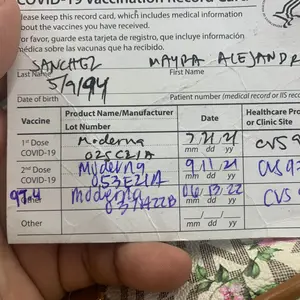 COVID-19 Vaccination Record Card
Please keep this record card, which includes medical information
about the vaccines you have received.
Por favor, guarde esta tarjeta de registro, que incluye información
médica sobre las vacunas que ha recibido.
SANCHEZ MAYRA ALEJANDR
Last Name First Name
5/9/94
Date of birth Patient number (medical record or IIS reco
Vaccine Product Name/Manufacturer Date Healthcare Pro
Lot Number or Clinic Site
1st Dose Moderna CVS
COVID-19 025C21A mm dd yy
2nd Dose Moderna 9 11 21 CVS
COVID-19 053E21A mm dd yy
Moderna 06 13 22 CVS
mm dd yy
Other
mm dd yy